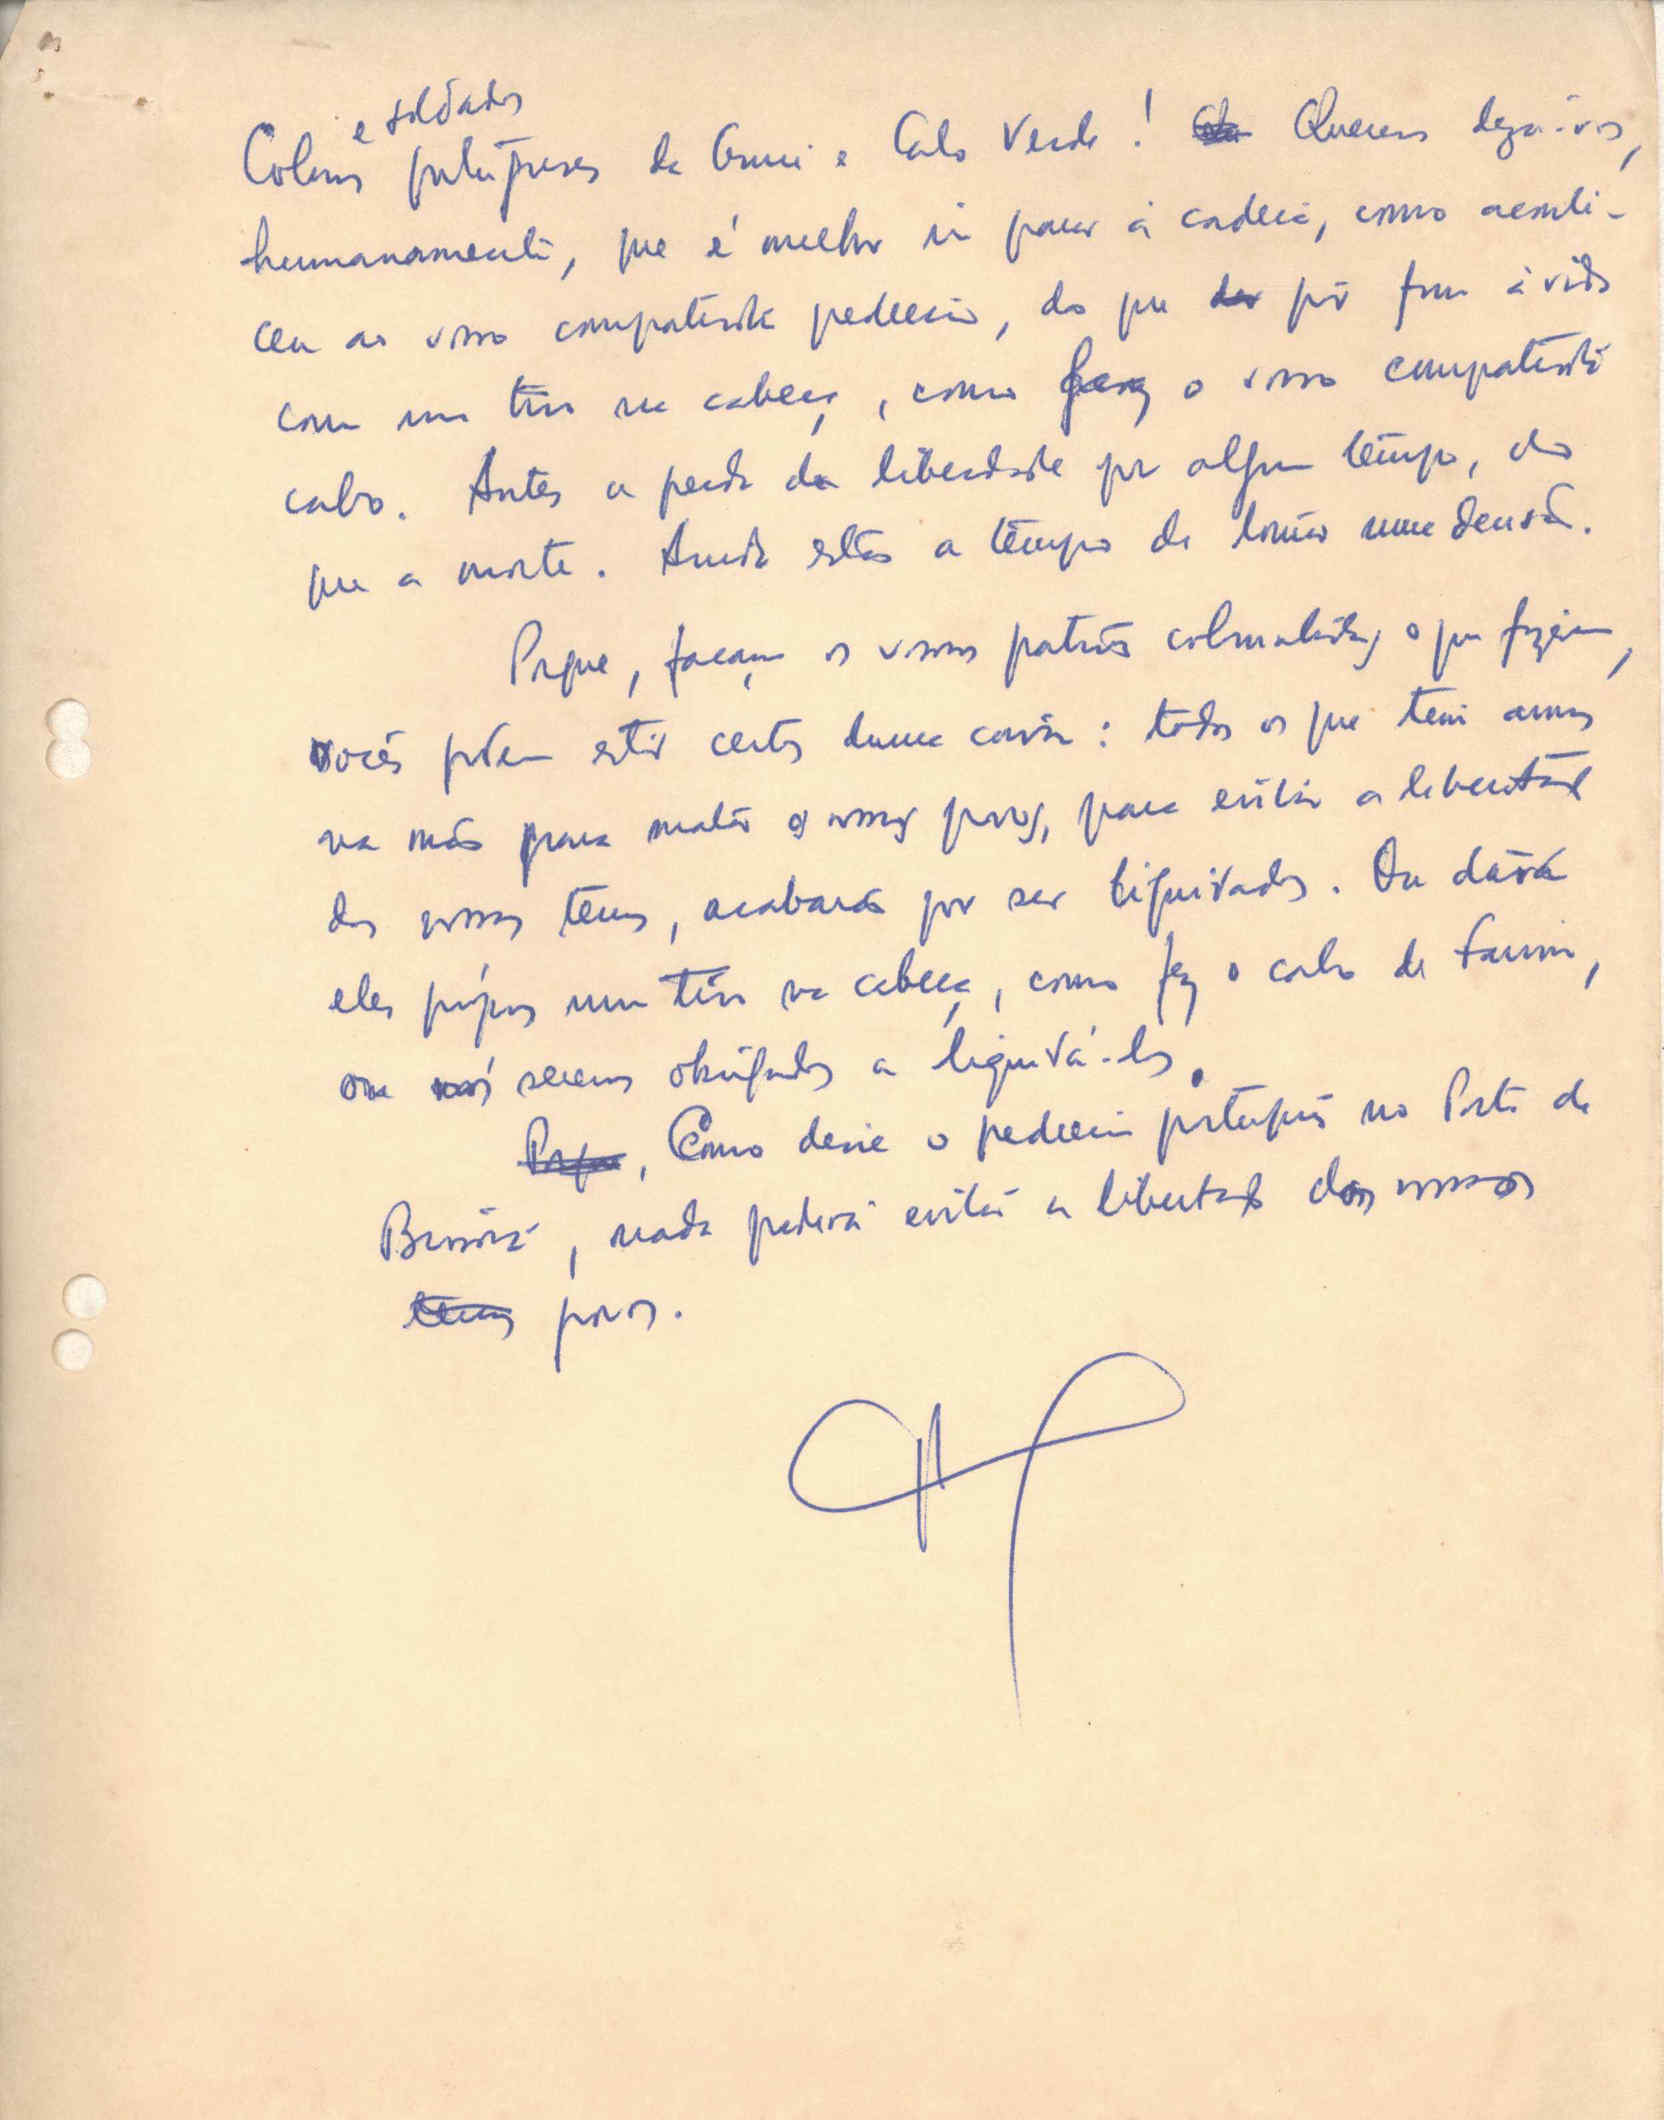 e soldados
Colonos portugueses da Guiné e Cabo Verde! Queremos dizer-vos,
humanamente, que é melhor ir parar à cadeia, como aconte-
ceu ao vosso compatriota pedreiro, do que dar pôr fim à vida
com um tiro na cabeça, como fez o vosso compatriota
cabo. Antes a perda da liberdade por algum tempo, do
que a morte. Ainda estão a tempo de tomar uma decisão.
Porque, façam os vossos patrões colonialistas o que fizerem,
vocês podem estar certos duma coisa: todos os que têm armas
na mão para matar os nossos povos, para evitar a libertação
das nossas terras, acabarão por ser liquidados. Ou darão
eles próprios um tiro na cabeça, como fez o cabo de Farim,
ou nós seremos obrigados a liquidá-los.
Porque, Como disse o pedreiro português no Porto de
Bissau, nada poderá evitar a libertação dos nossos
terras povos.